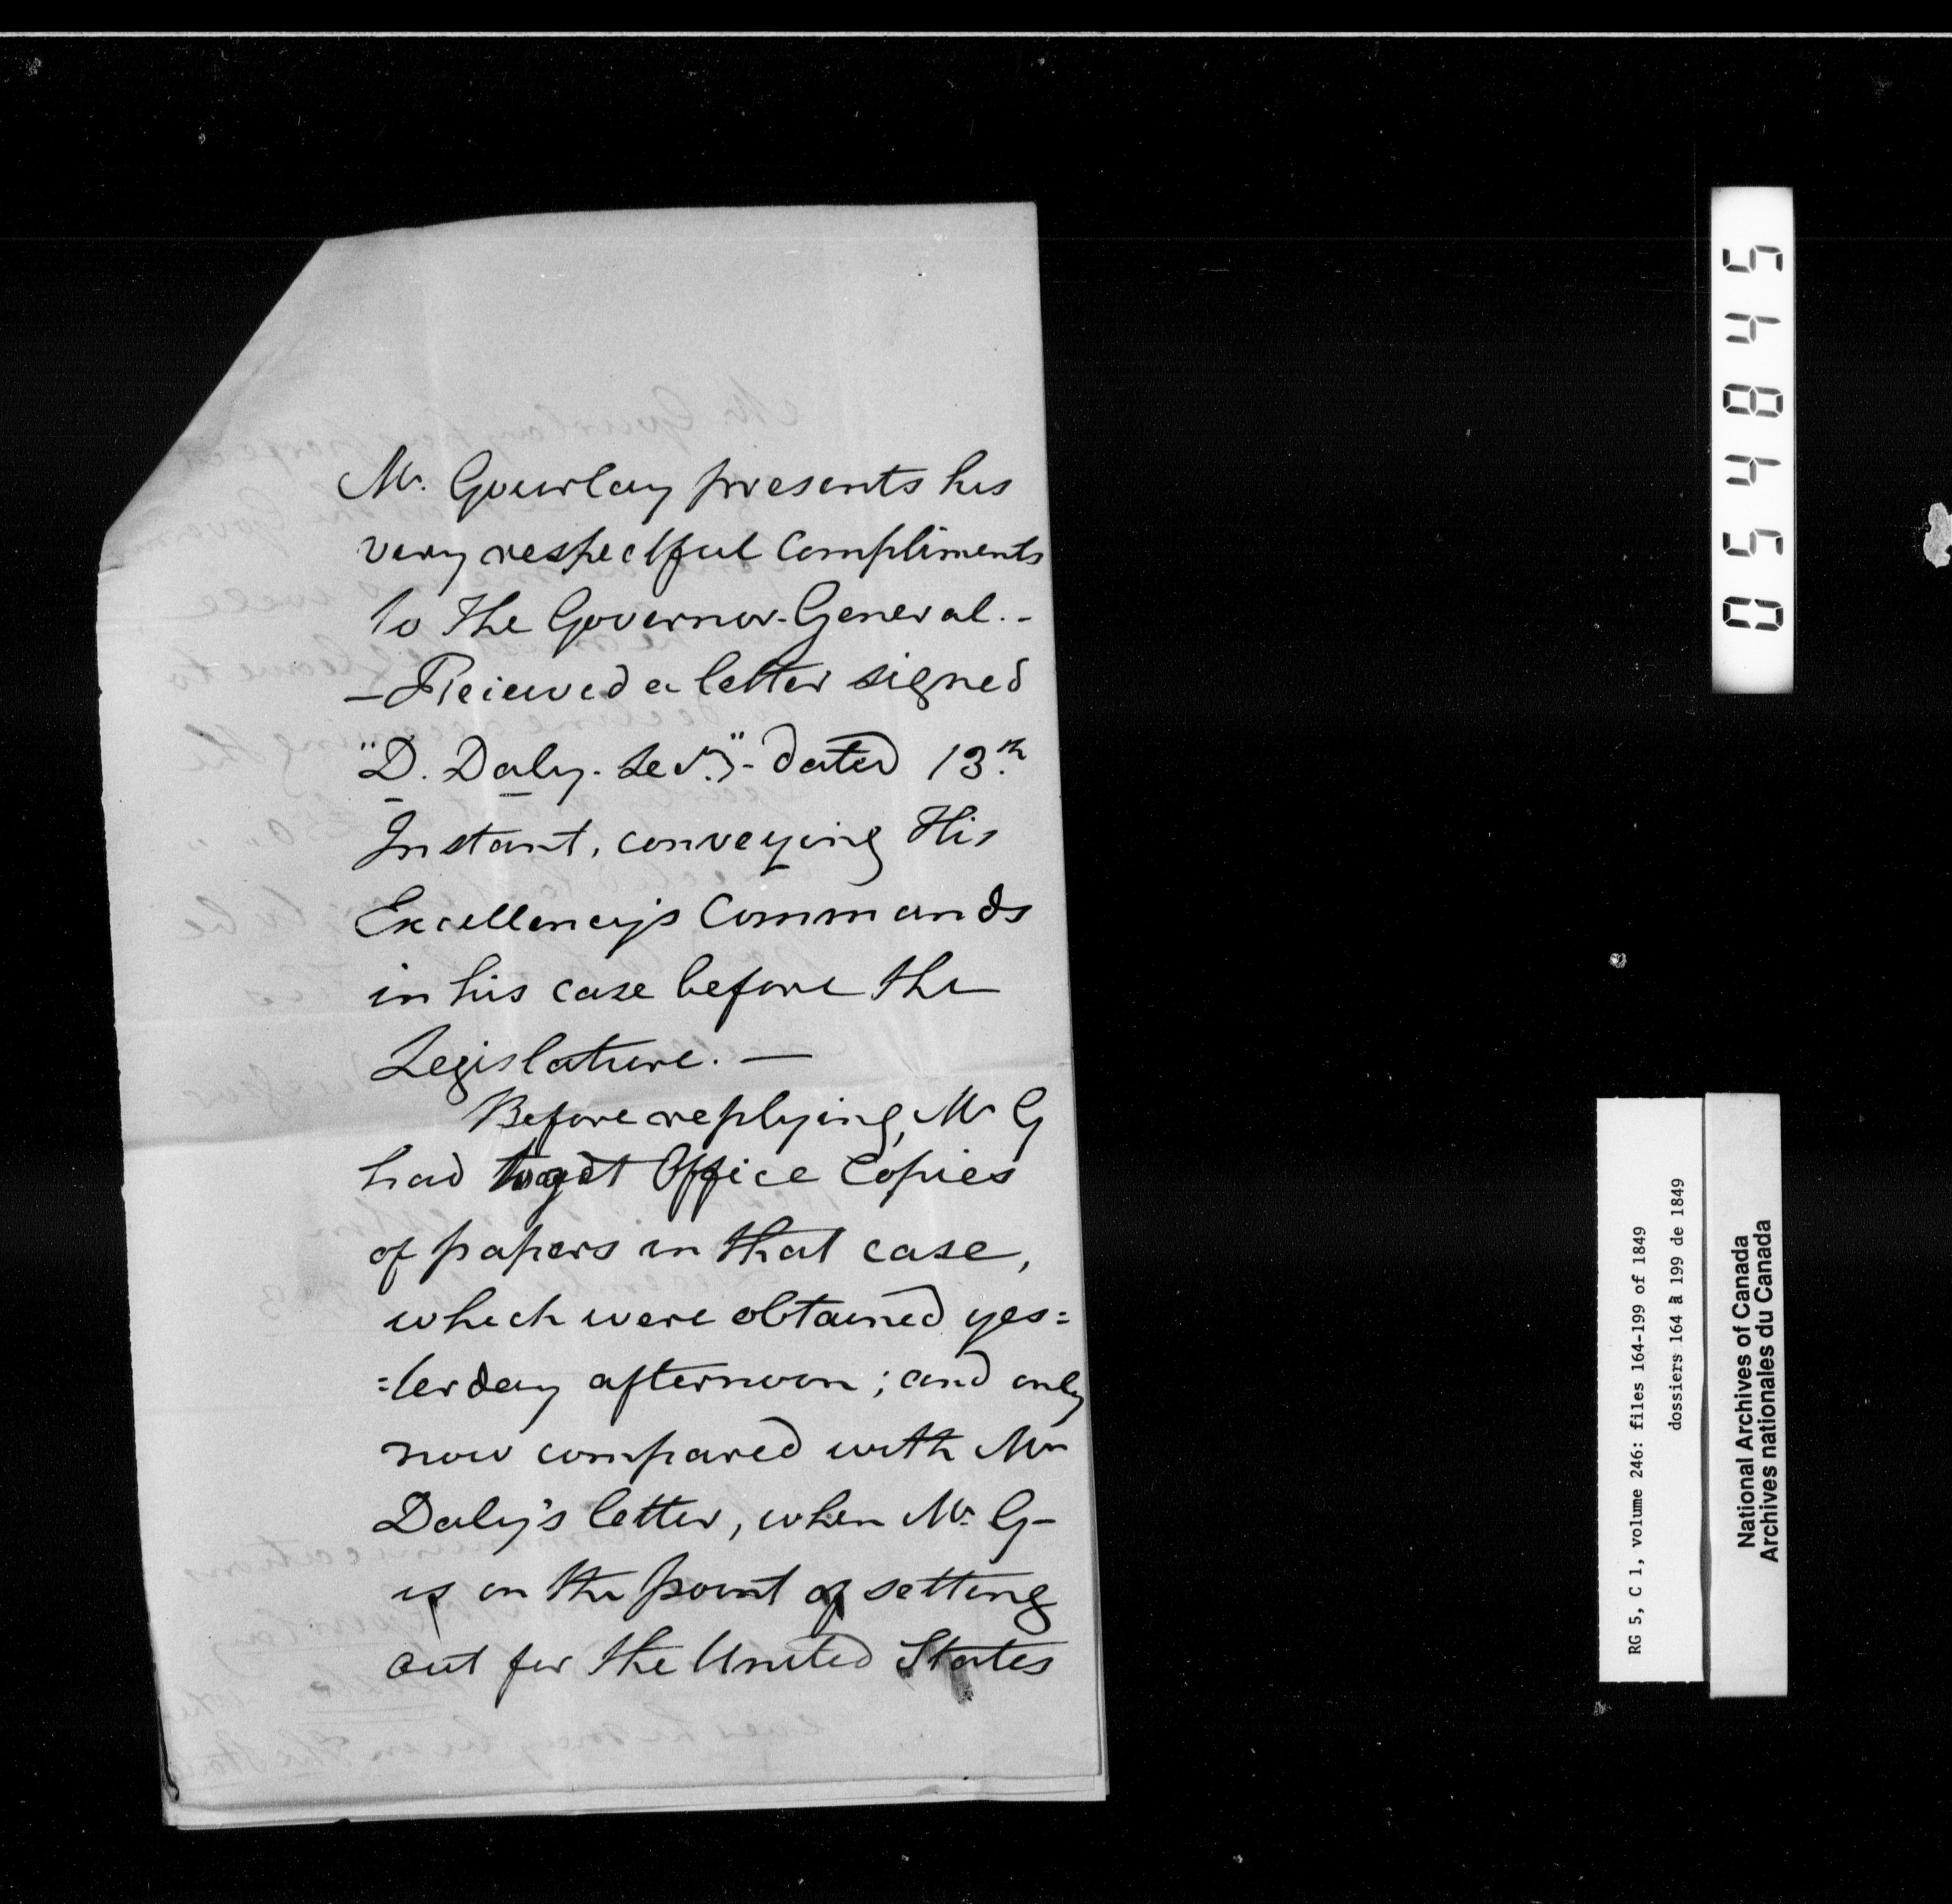 Mr. Gourlay presents his
very respectful Compliments
to the Governor-General. -
- Reieived a letter signed
"D. Daly. Secy." - dated 13th.
Instant, conveying His
Excellency's Commands
in his case before the
Legislature. —
Before replying, Mr G
had to get Office Copies
of papers in that case,
which were obtained yes=
=terday afternoon; and only
now compared with Mr
Daly's letter, when Mr. G-
is on the point of setting
out for the United States
054845
RG 5, C 1, volume 246: files 164-199 of 1849
dossiers 164 à 199 de 1849
National Archives of Canada
Archives nationales du Canada